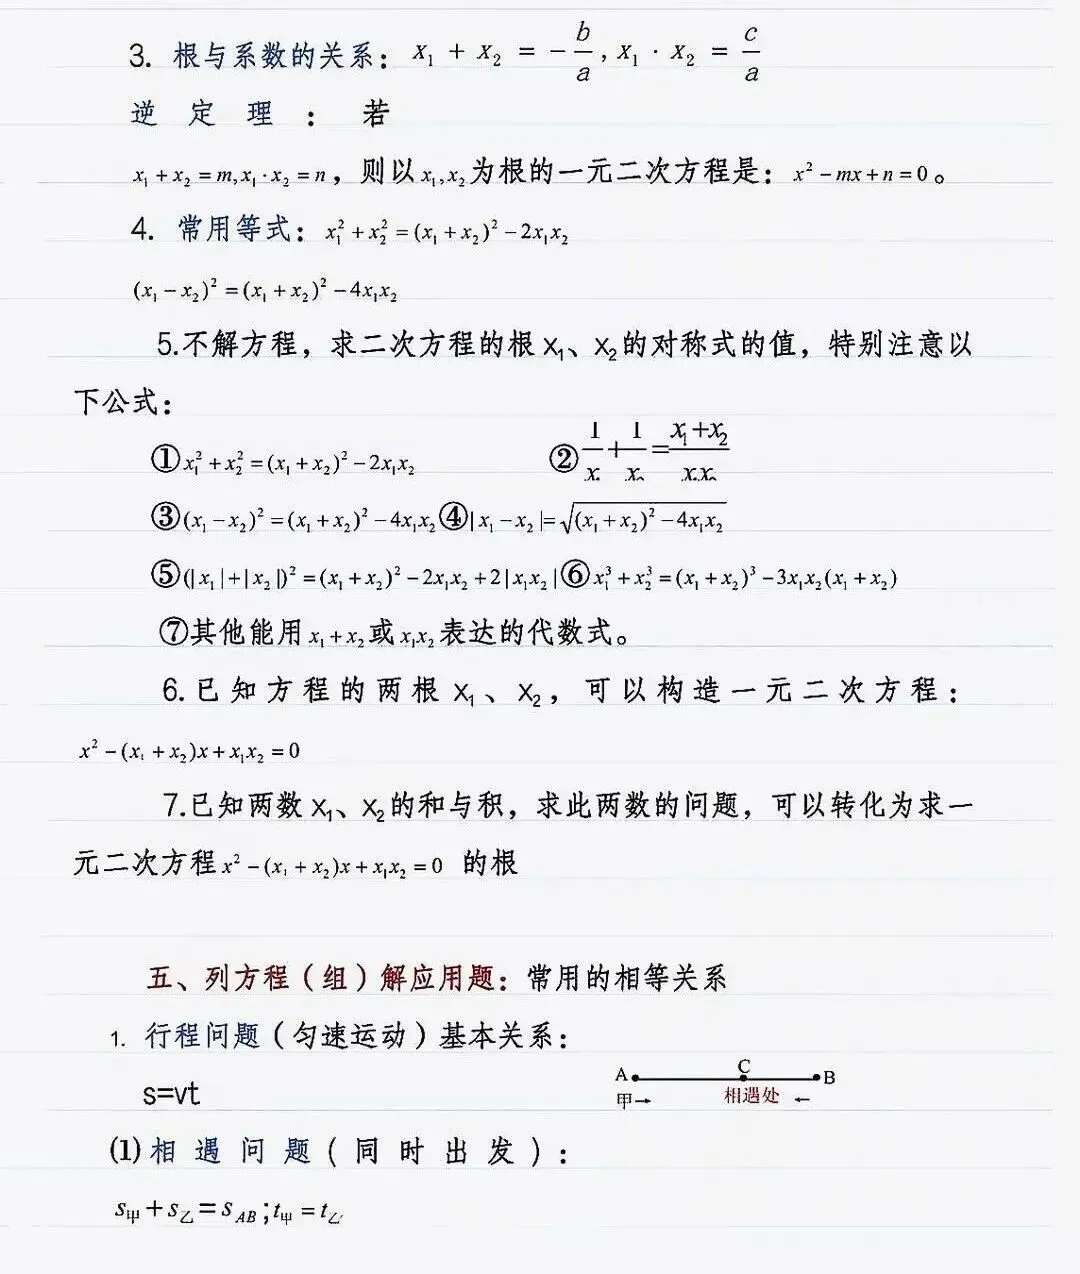 3. 根与系数的关系：x₁ + x₂ = -b/a, x₁ · x₂ = c/a
逆定理：若
x₁ + x₂ = m, x₁ · x₂ = n，则以x₁, x₂为根的一元二次方程是：x² - mx + n = 0。
4. 常用等式：x₁² + x₂² = (x₁ + x₂)² - 2x₁x₂
(x₁ - x₂)² = (x₁ + x₂)² - 4x₁x₂
5.不解方程，求二次方程的根x₁、x₂的对称式的值，特别注意以
下公式：
①x₁² + x₂² = (x₁ + x₂)² - 2x₁x₂ ②1/x₁ + 1/x₂ = (x₁+x₂)/x₁x₂
③(x₁ - x₂)² = (x₁ + x₂)² - 4x₁x₂ ④|x₁ - x₂| = √((x₁ + x₂)² - 4x₁x₂)
⑤(|x₁| + |x₂|)² = (x₁ + x₂)² - 2x₁x₂ + 2|x₁x₂| ⑥x₁³ + x₂³ = (x₁ + x₂)³ - 3x₁x₂(x₁ + x₂)
⑦其他能用x₁ + x₂或x₁x₂表达的代数式。
6.已知方程的两根x₁、x₂，可以构造一元二次方程：
x² - (x₁ + x₂)x + x₁x₂ = 0
7.已知两数x₁、x₂的和与积，求此两数的问题，可以转化为求一
元二次方程x² - (x₁ + x₂)x + x₁x₂ = 0 的根
五、列方程（组）解应用题：常用的相等关系
1. 行程问题（匀速运动）基本关系：
s=vt
A C B
甲→ 相遇处 ←
⑴相遇问题(同时出发)：
s甲 + s乙 = sAB ; t甲 = t乙